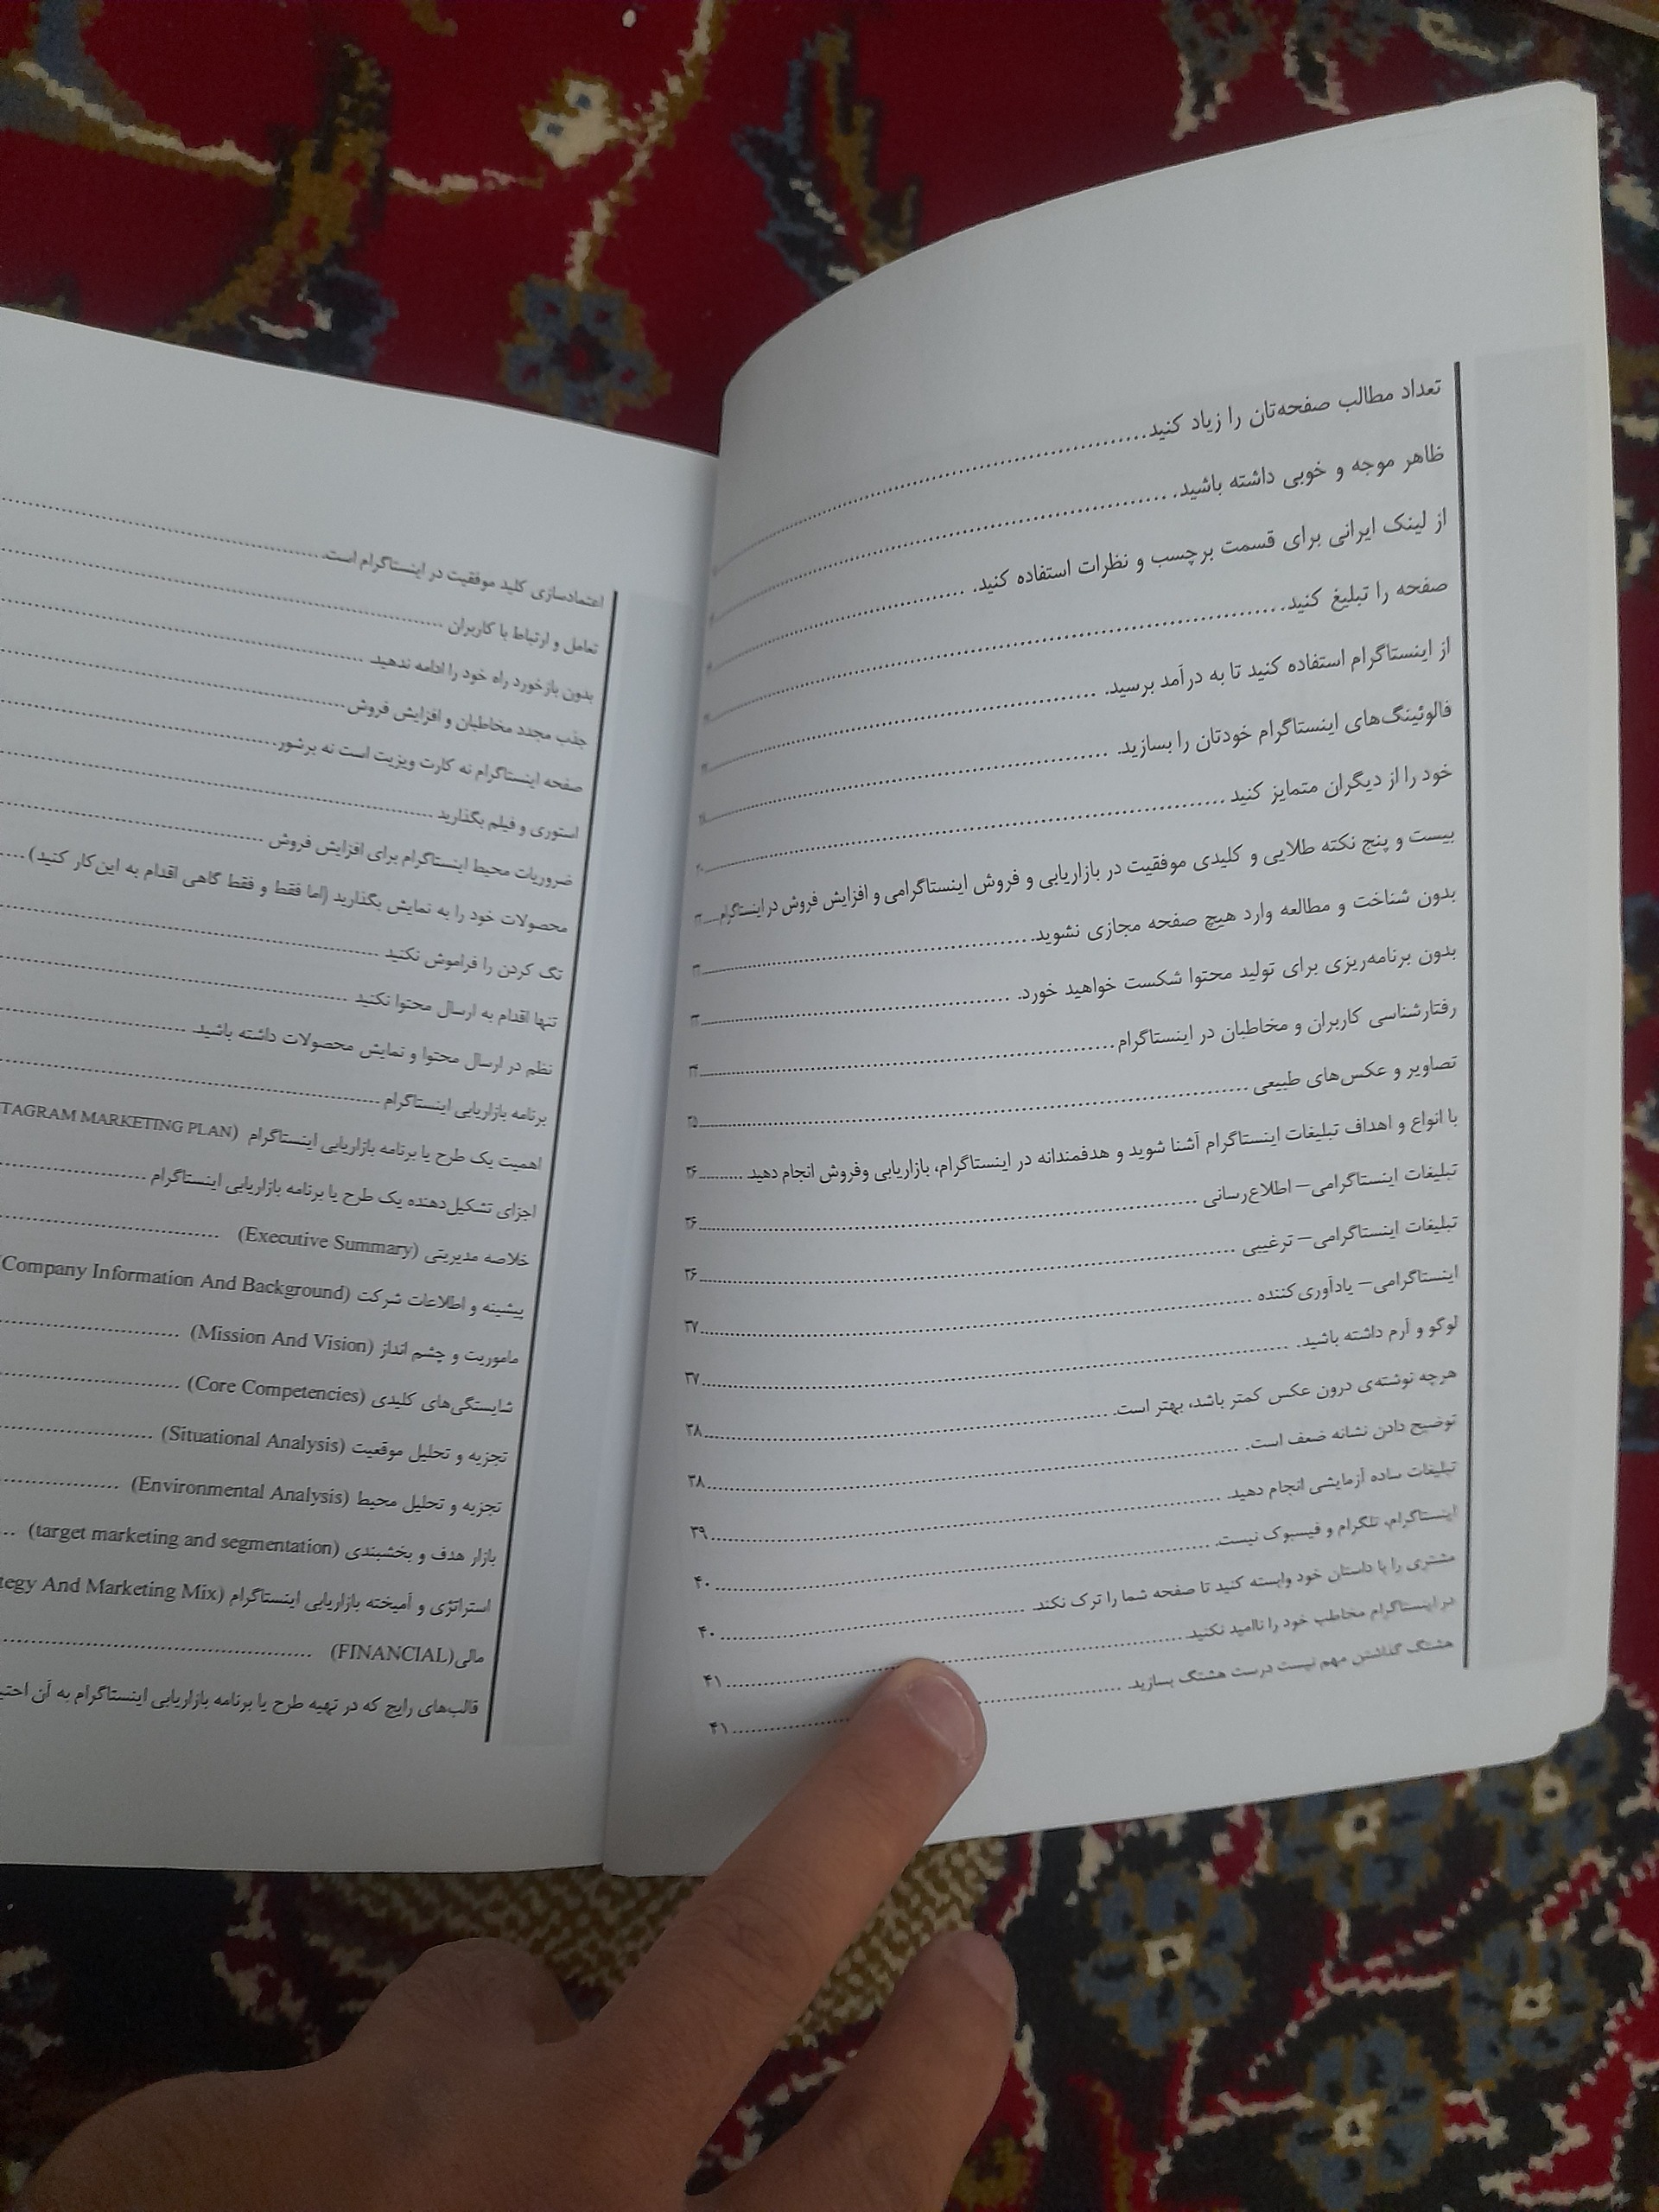 تعداد مطالب صفحه‌تان را زیاد کنید
ظاهر موجه و خوبی داشته باشید.
از لینک ایرانی برای قسمت برچسب و نظرات استفاده کنید.
صفحه را تبلیغ کنید
از اینستاگرام استفاده کنید تا به درآمد برسید.
فالوئینگ‌های اینستاگرام خودتان را بسازید.
خود را از دیگران متمایز کنید
بیست و پنج نکته طلایی و کلیدی موفقیت در بازاریابی و فروش اینستاگرامی و افزایش فروش در اینستاگرام
بدون شناخت و مطالعه وارد هیچ صفحه مجازی نشوید.
بدون برنامه‌ریزی برای تولید محتوا شکست خواهید خورد. ۳۳
رفتارشناسی کاربران و مخاطبان در اینستاگرام ۳۴
تصاویر و عکس‌های طبیعی ۳۵
با انواع و اهداف تبلیغات اینستاگرام آشنا شوید و هدفمندانه در اینستاگرام، بازاریابی وفروش انجام دهید ۳۶
تبلیغات اینستاگرامی– اطلاع‌رسانی ۳۶
تبلیغات اینستاگرامی– ترغیبی ۳۶
اینستاگرامی– یادآوری‌کننده ۳۷
لوگو و آرم داشته باشید. ۳۷
هرچه نوشته‌ی درون عکس کمتر باشد، بهتر است. ۳۸
توضیح دادن نشانه ضعف است. ۳۸
تبلیغات ساده آزمایشی انجام دهید. ۳۹
اینستاگرام، تلگرام و فیسبوک نیست. ۴۰
مشتری را با داستان خود وابسته کنید تا صفحه شما را ترک نکند. ۴۰
در اینستاگرام مخاطب خود را ناامید نکنید. ۴۱
هشتگ گذاشتن مهم نیست درست هشتگ بسازید. ۴۱
اعتمادسازی کلید موفقیت در اینستاگرام است.
تعامل و ارتباط با کاربران
بدون بازخورد راه خود را ادامه ندهید
جذب مجدد مخاطبان و افزایش فروش
صفحه اینستاگرام نه کارت ویزیت است نه برشور.
استوری و فیلم بگذارید
ضروریات محیط اینستاگرام برای افزایش فروش
محصولات خود را به نمایش بگذارید (اما فقط و فقط گاهی اقدام به این‌کار کنید)
تگ کردن را فراموش نکنید
تنها اقدام به ارسال محتوا نکنید
نظم در ارسال محتوا و نمایش محصولات داشته باشید.
برنامه بازاریابی اینستاگرام
اهمیت یک طرح یا برنامه بازاریابی اینستاگرام (TAGRAM MARKETING PLAN
اجزای تشکیل‌دهنده یک طرح یا برنامه بازاریابی اینستاگرام
خلاصه مدیریتی (Executive Summary)
پیشینه و اطلاعات شرکت (Company Information And Background)
ماموریت و چشم انداز (Mission And Vision)
شایستگی‌های کلیدی (Core Competencies)
تجزیه و تحلیل موقعیت (Situational Analysis)
تجزیه و تحلیل محیط (Environmental Analysis)
بازار هدف و بخشبندی (target marketing and segmentation)
استراتژی و آمیخته بازاریابی اینستاگرام (tegy And Marketing Mix
مالی(FINANCIAL)
قالب‌های رایج که در تهیه طرح یا برنامه بازاریابی اینستاگرام به آن